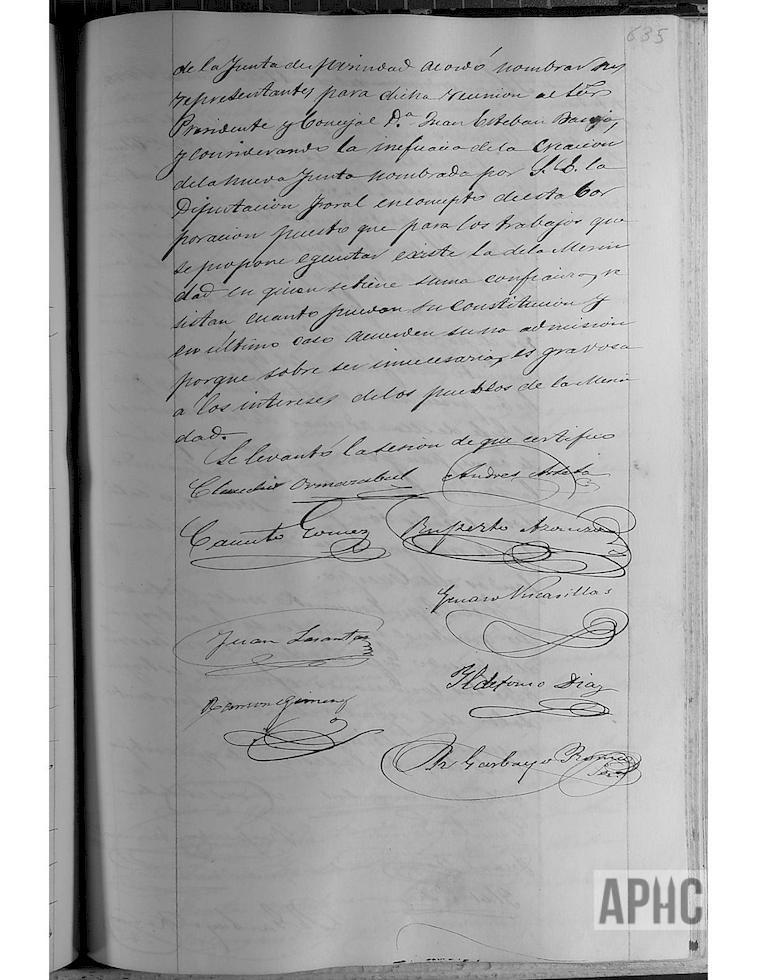 635
de la Junta de merindad acordó nombrar sus
representantes para dicha reunion al Señor
Presidente y Concejal D.ⁿ Juan Esteban
y considerando la ineficacia de la Creacion
de la nueva Junta nombrada por S. E. la
Diputacion foral en concepto de esta Cor
poracion puesto que para los trabajos que
se propone egecutar existe la de la Merin
dad en quien se tiene suma confianza, re
sistan cuanto puedan su constitucion y
en último caso acuerden su no admision
porque sobre ser innecesaria, es gravosa
a los intereses de los pueblos de la Merin
dad.
Se levantó la sesion de que certifico
Claudio Ormazabal Andres
Canuto Gomez Ruperto Azanza
Genaro Vicasillas
Juan Lasantas
Ildefonso Diaz
Ramon Gimenez
Garbayo
APHC